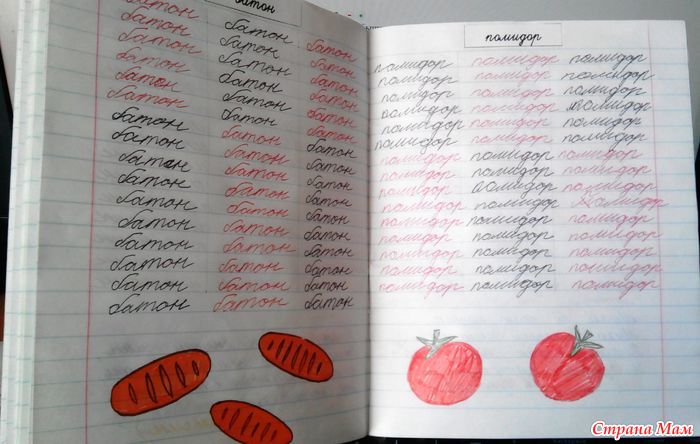 батон
батон
батон батон батон
батон батон батон
батон батон батон
батон батон батон
батон батон батон
батон батон батон
батон батон батон
батон батон батон
батон батон батон
батон батон батон
батон батон батон
батон батон батон
батон батон батон
батон батон батон
батон батон батон
помидор
помидор помидор помидор
помидор помидор помидор
помидор помидор помидор
помидор помидор помидор
помидор помидор помидор
помидор помидор помидор
помидор помидор помидор
помидор помидор помидор
помидор помидор помидор
помидор помидор помидор
помидор помидор помидор
помидор помидор помидор
помидор помидор помидор
помидор помидор помидор
помидор помидор помидор
Страна Мам